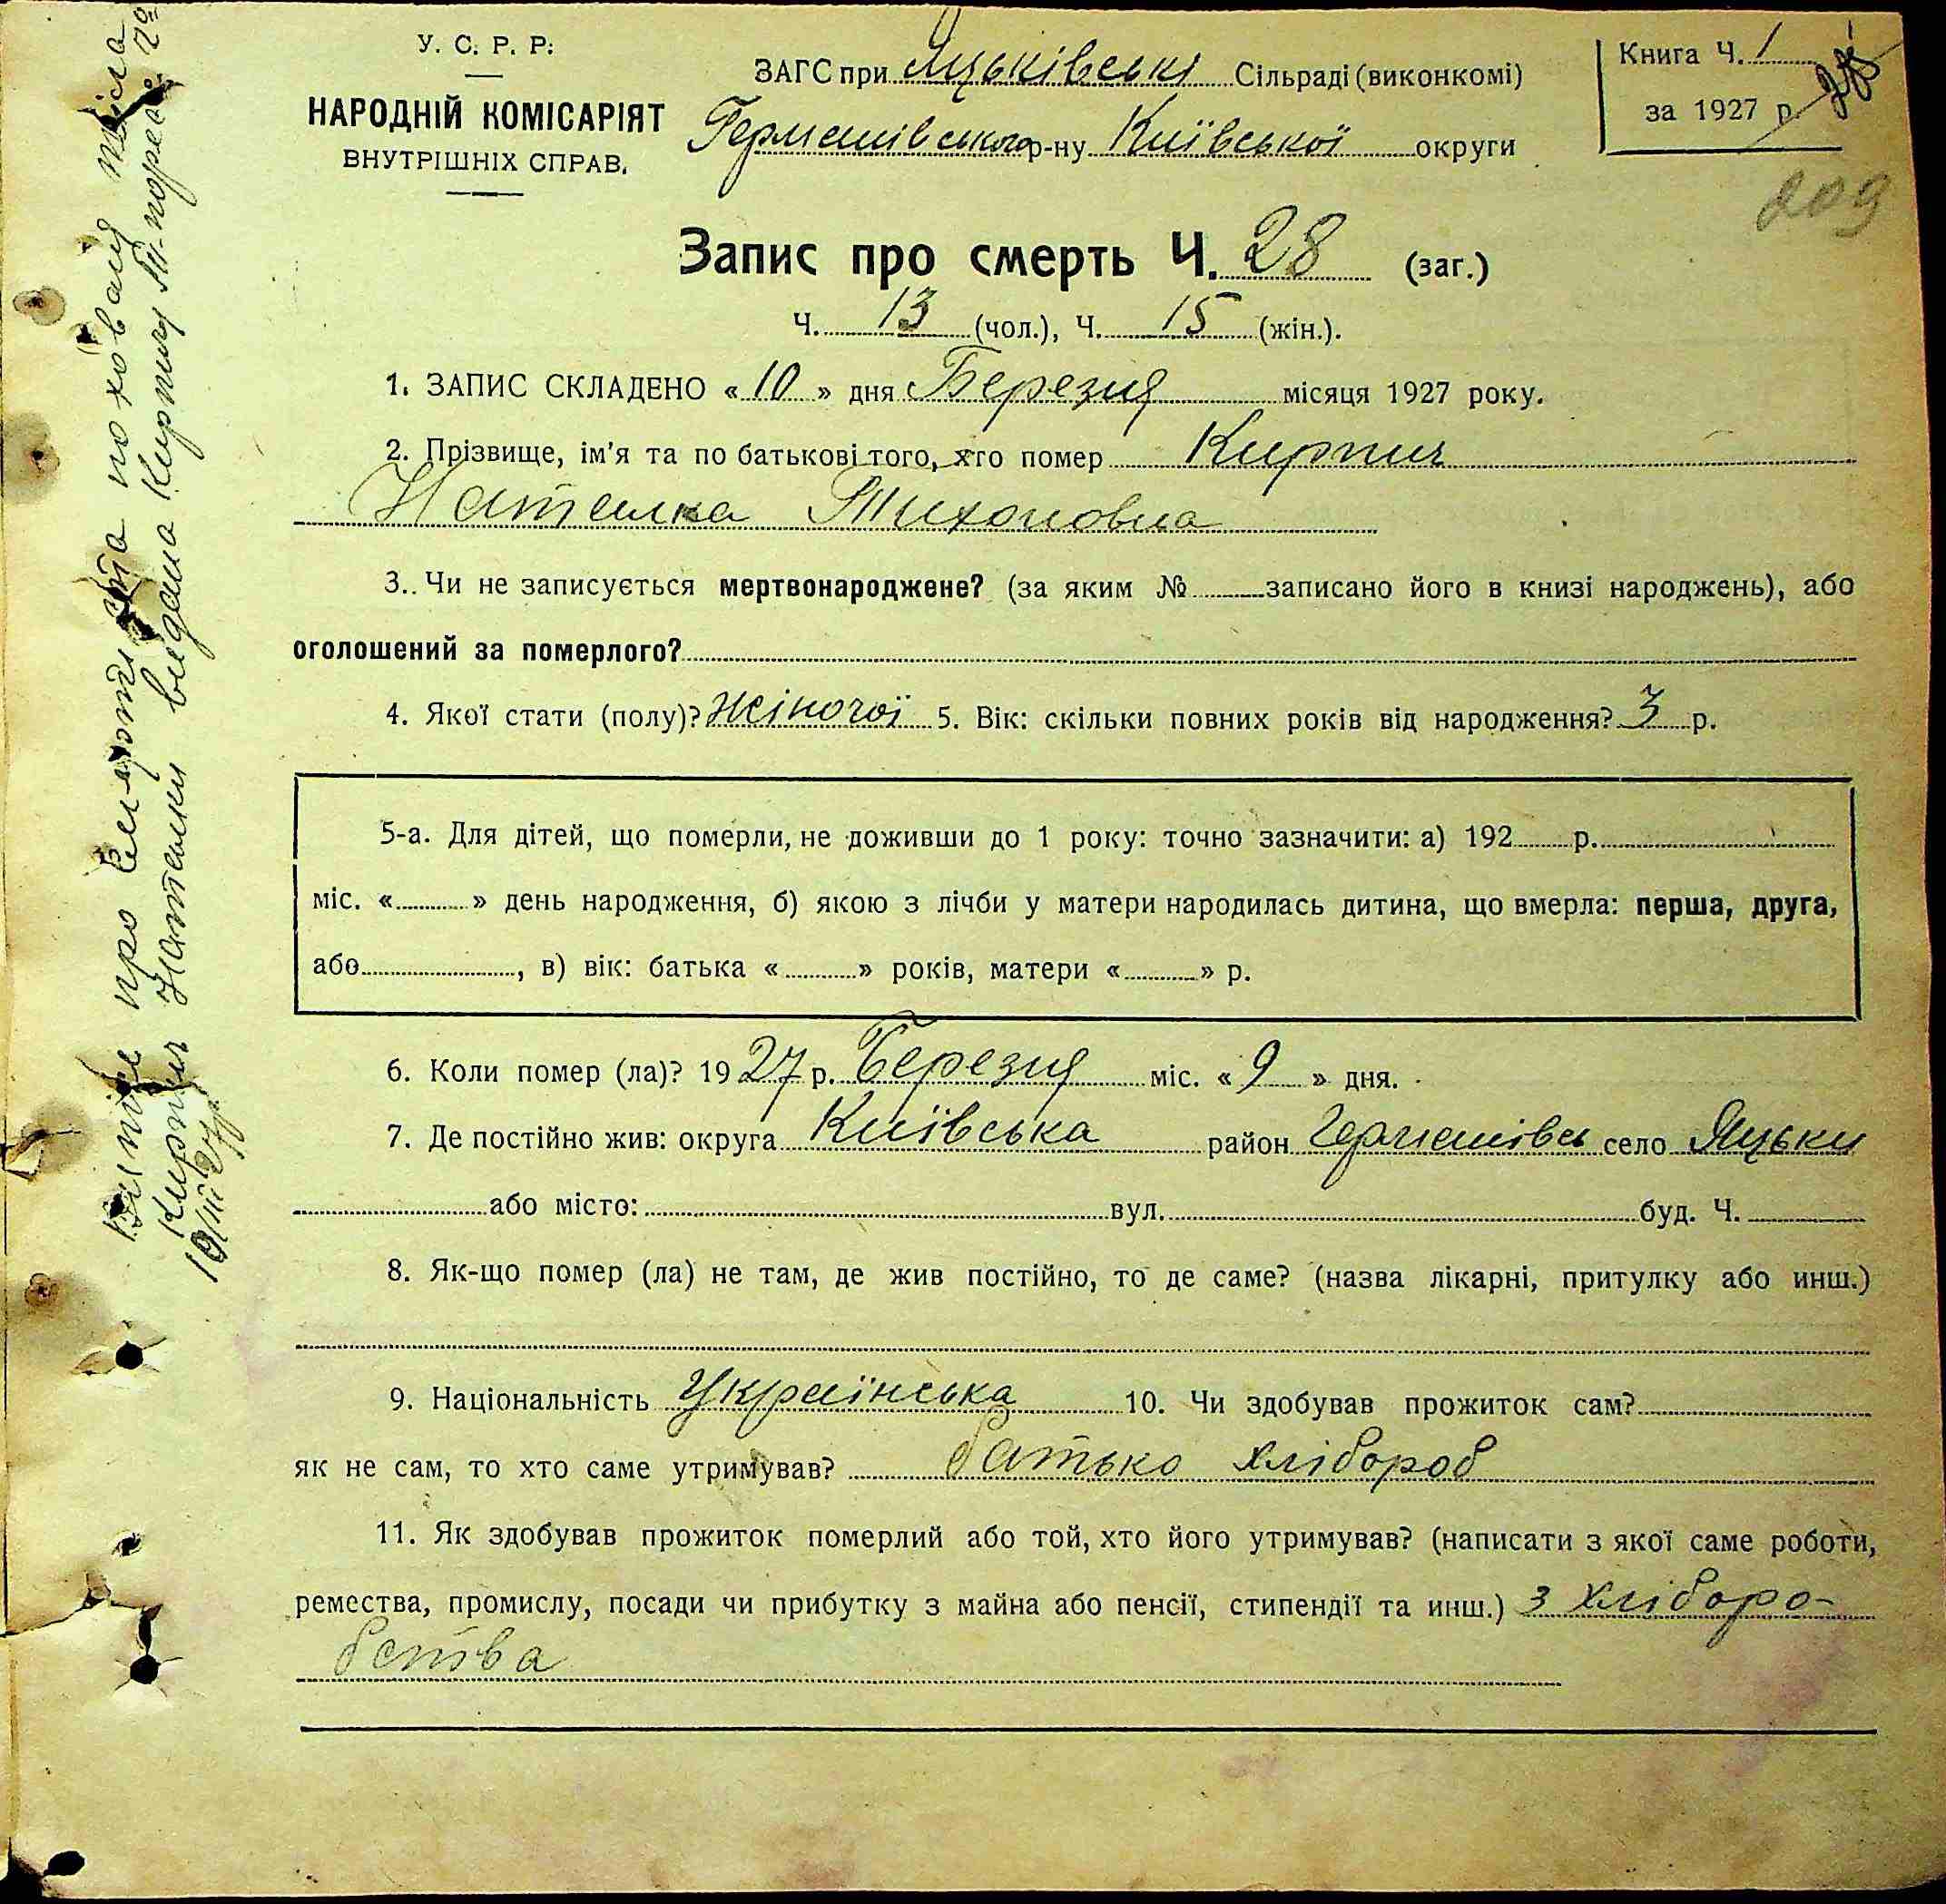 У. С. Р. Р.
НАРОДНІЙ КОМІСАРІЯТ
ВНУТРІШНІХ СПРАВ.
ЗАГС при Яцьківські Сільраді (виконкомі)
Германівського р-ну Київської округи
Книга Ч. 1
за 1927 р.
209
Запис про смерть Ч. 28 (заг.)
Ч. 13 (чол.), Ч. 15 (жін.).
1. ЗАПИС СКЛАДЕНО « 10 » дня Березня місяця 1927 року.
2. Прізвище, ім'я та по батькові того, хто помер Кирпич
Наталка Тихоновна
3. Чи не записується мертвонароджене? (за яким № записано його в книзі народжень), або
оголошений за померлого?
4. Якої стати (полу)? жіночої 5. Вік: скільки повних років від народження? 3 р.
5-а. Для дітей, що померли, не доживши до 1 року: точно зазначити: а) 192 р.
міс. « » день народження, б) якою з лічби у матери народилась дитина, що вмерла: перша, друга,
або , в) вік: батька « » років, матери « » р.
6. Коли помер (ла)? 1927 р. Березня міс. « 9 » дня.
7. Де постійно жив: округа Київська район Германівсь село Яцьки
або місто: вул. буд. Ч.
8. Як-що помер (ла) не там, де жив постійно, то де саме? (назва лікарні, притулку або инш.)
9. Національність Українська 10. Чи здобував прожиток сам?
як не сам, то хто саме утримував? батько хлібороб
11. Як здобував прожиток померлий або той, хто його утримував? (написати з якої саме роботи,
ремества, промислу, посади чи прибутку з майна або пенсії, стипендії та инш.) з хліборо-
бства
про смерть та поховання тіла
Кирпич Наталки видана Кирпичу
10/III 27р.